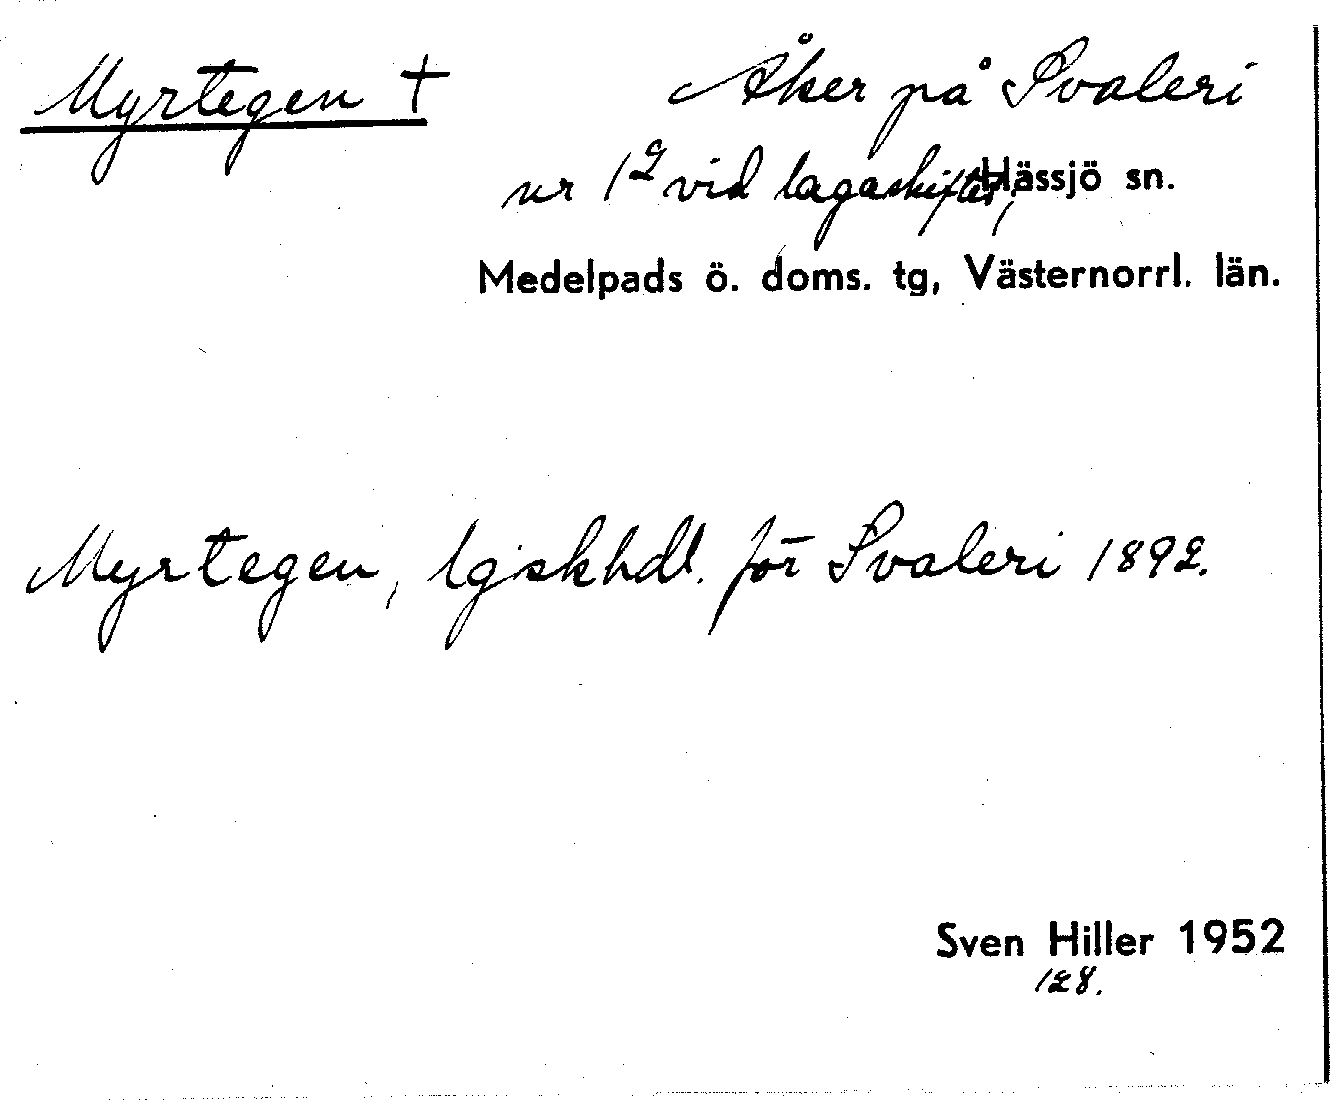 Myrtegen † Åker på Svaleri
nr 1² vid lagaskiftet, Hässjö sn.
Medelpads ö. doms. tg, Västernorrl. län.
Myrtegen, lgskhdl. för Svaleri 1892.
Sven Hiller 1952
128.